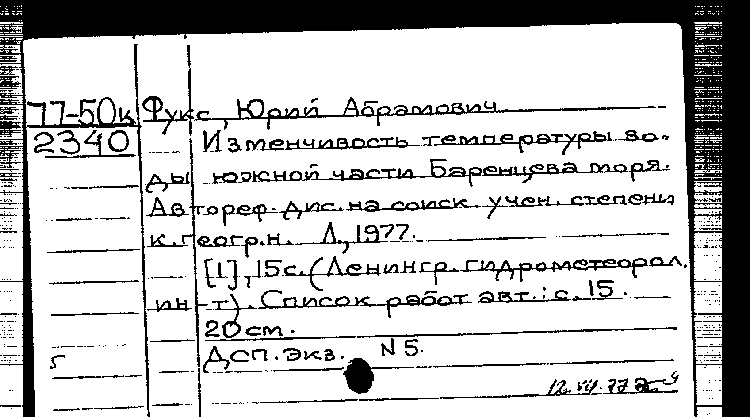 77-50к Фукс, Юрий Абрамович
2340 Изменчивость температуры во-
ды южной части Баренцева моря.
Автореф. дис. на соиск. учен. степени
к. геогр. н. Л., 1977.
[1], 15 с. (Ленингр. гидрометеорол.
ин-т). Список работ авт.: с. 15.
20 см.
ДСП. Экз. N 5.
5
12.VII.77